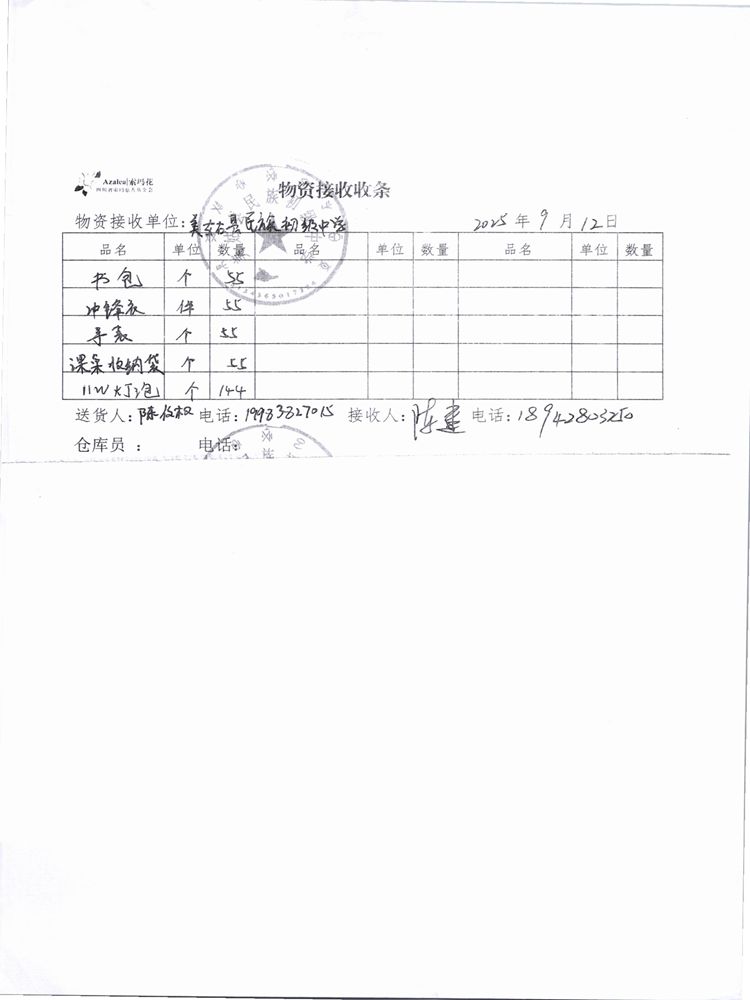 Azalea|索玛花
物资接收收条
物资接收单位:美姑县民族初级中学 2025年9月12日
品名 单位 数量 品名 单位 数量 品名 单位 数量
书包 个 55
冲锋衣 件 55
手表 个 55
课桌收纳袋 个 55
11W灯泡 个 144
送货人:陈 电话:19983827015 接收人:陈 电话:18942803250
仓库员 : 电话: